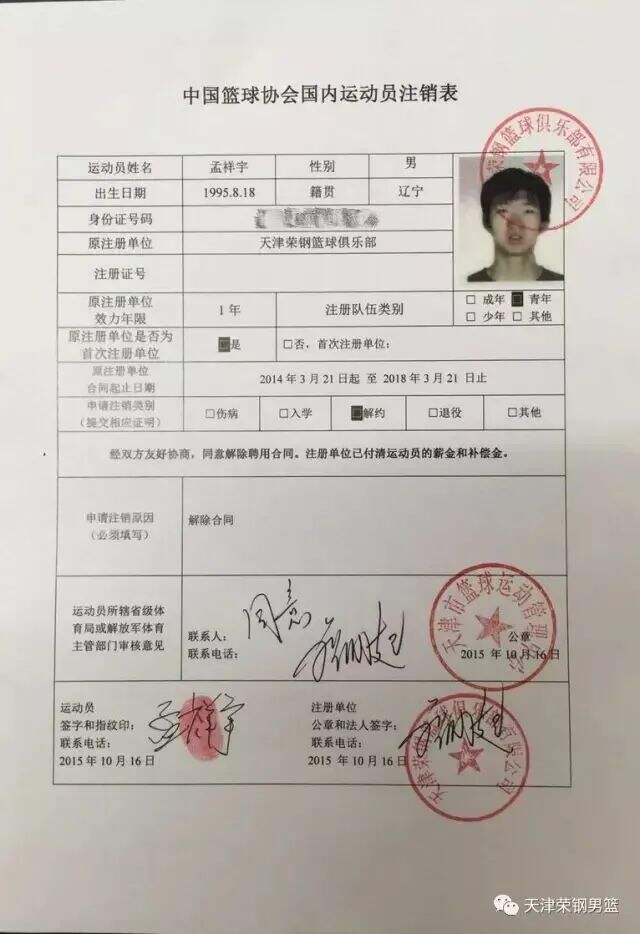 中国篮球协会国内运动员注销表
运动员姓名 孟祥宇 性别 男
出生日期 1995.8.18 籍贯 辽宁
身份证号码
原注册单位 天津荣钢篮球俱乐部
注册证号
原注册单位
效力年限 1 年 注册队伍类别 □ 成年 ■ 青年
□ 少年 □ 其他
原注册单位是否为
首次注册单位 ■是 □否，首次注册单位:
原注册单位
合同起止日期 2014 年 3 月 21 日起 至 2018 年 3 月 21 日止
申请注销类别
(提交相应证明) □伤病 □入学 ■解约 □退役 □其他
经双方友好协商，同意解除聘用合同。注册单位已付清运动员的薪金和补偿金。
申请注销原因
(必须填写) 解除合同
运动员所辖省级体
育局或解放军体育
主管部门审核意见
同意
联系人:
联系电话:
公章
2015 年 10 月 16 日
天津市篮球运动管理中心
运动员
签字和指纹印: 孟祥宇
联系电话:
2015 年 10 月 16 日
注册单位
公章和法人签字:
联系电话:
2015 年 10 月 16 日
天津荣钢篮球俱乐部有限公司
天津荣钢篮球俱乐部有限公司
天津荣钢男篮